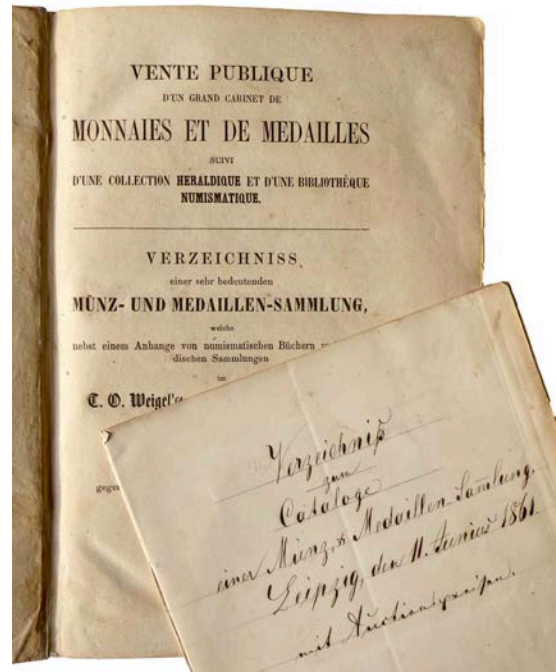 VENTE PUBLIQUE
D'UN GRAND CABINET DE
MONNAIES ET DE MEDAILLES
SUIVI
D'UNE COLLECTION HERALDIQUE ET D'UNE BIBLIOTHÈQUE
NUMISMATIQUE.
VERZEICHNISS
einer sehr bedeutenden
MÜNZ- UND MEDAILLEN-SAMMLUNG,
welche
nebst einem Anhange von numismatischen Büchern
dischen Sammlungen
im
T. O. Weigel's
gegen
Verzeichniß
zum
Cataloge
einer Münz, & Medaillen-Samlung,
Leipzig, den 11. Junius 1861
mit Auctionspreisen.